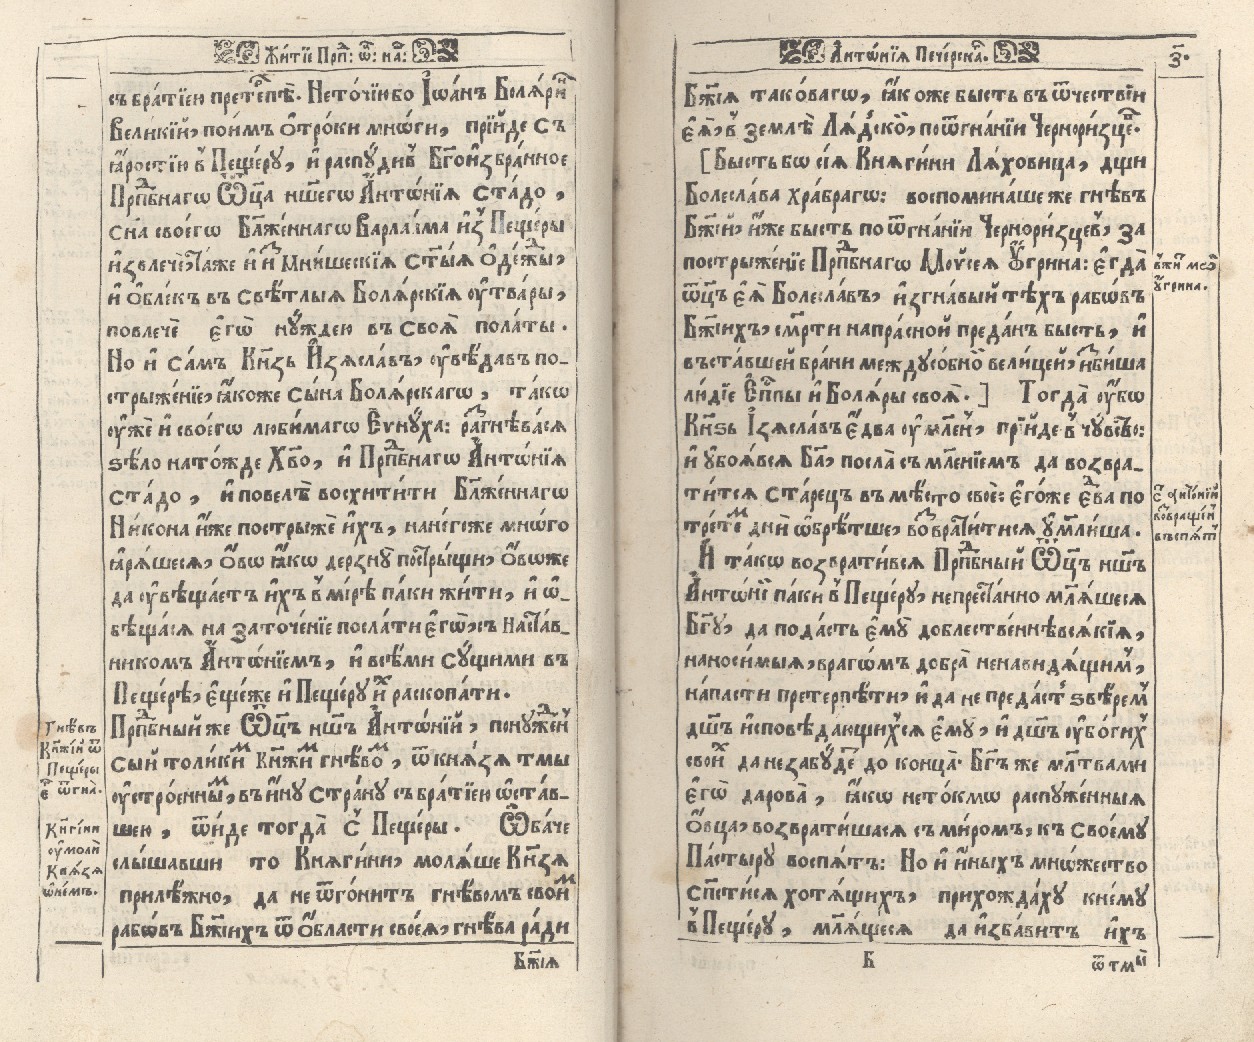 Жи́тїе Прпⷣ: ѿ: на́:
съ бра́тїею претерпѣ̀. Не то́чїю бо Іѡа́нъ Боля́ринъ
Великїй, пои́мъ о́троки мнѡ́ги, прїи́де съ
ꙗ́ростїю в̾ Пеще́ру, и҆ распу́дивъ Бг҃оизбра́нное
Прпⷣбнагѡ Ѿц҃а нш҃егѡ Анто́нїѧ ста́до,
сн҃а своегѡ Бл҃же́ннагѡ Варлаа́ма из̾ Пеще́ры
и҆звлече̑. Та́же и҆ и҆з̾ Мни́шескїѧ ст҃ы́ѧ оде́жды,
и҆ ѡблек въ свѣ́тлыѧ Болѧ́рскїѧ ᲂу҆тва́ры,
повлечѐ єго̀ ну́ждею въ своѧ̀ пола́ты.
Но и҆ са́мъ Кн҃зь И҆зѧсла́въ, ᲂу҆вѣ́давъ по-
стриже́нїе, ꙗ́коже сы́на Болѧ́рскагѡ, та́кѡ
ᲂу҆́же и҆ своего̀ люби́магѡ Єѵну́ха: разгнѣ́васѧ
ѕѣ́ло на то́жде Хв҃о, и҆ Прпⷣбнагѡ Анто́нїѧ
ста́до, и҆ повелѣ̀ восхити́ти Бл҃же́ннагѡ
Ни́кона и҆́же пострыжѐ и҆́хъ, на негоже мно́гѡ
ꙗ҆рѧ́шесѧ, ѻвѡ ꙗ́кѡ дерзну̀ постры́щи, ѻвѡже
да ᲂу҆вѣща́етъ и҆́хъ в̾ ми́рѣ па́ки жи́ти, и҆ ѡ-
бѣща́сѧ на заточе́нїе посла́ти єго̀, съ Наста́в-
никомъ Анто́нїемъ, и҆ всѣ́ми су́щими въ
Пеще́рѣ, є҆ще́же и҆ Пеще́ру и҆́хъ раскопа́ти.
Прпⷣбный же Ѿц҃ъ нш҃ъ Анто́нїй, пону́жденъ
сый толи́кимъ Кн҃жимъ гнѣ́вомъ, ѿ кнѧ́зѧ тмы
ᲂу҆стро́еннымъ, въ и҆́ну страну̀ съ бра́тїею ѡста́в-
шею, ѿи́де тогда̀ с̾ Пеще́ры. Ѻба́че
слы́шавши то Кнѧги́ни, молѧ́ше Кн҃зѧ
прилѣ́жно, да не ѿго́нитъ гнѣ́вомъ свои́мъ
рабѡ́въ Бж҃їихъ ѿ ѻбласти своеѧ̀, гнѣ́ва ра́ди
Бж҃їѧ
Гнѣ́въ
Кн҃жїй ѿ
Пеще́ры
є҆ ѿгна̀.
Кн҃ги́ни
ᲂу҆молѝ
Кнѧ́зѧ
ѡ не́мъ.
Анто́нїѧ Пече́рскаⷢ.
з҃.
Бж҃їѧ тако́вагѡ, ꙗ́коже бысть въ ѿче́ствїи
єѧ̀, в̾ землѣ̀ Лѧ́дско, по ѿгна́нїи Чернори́зцевъ.
[Бысть бѡ сїѧ Кнѧги́ни Лѧ́ховица, дщи
Болесла́ва хра́брагѡ: воспомина́ше же гнѣ́въ
Бж҃їй, и҆́же бысть по ѿгна́нїи Чернори́зцевъ, за
постриже́нїе Прпⷣбнагѡ Мѡѷсеѧ Ѹ҆́грина: є҆гда̀
ѿц҃ъ єѧ̀ Болесла́въ, и҆згна́вый тѣ́хъ рабѡ́въ
Бж҃їихъ, сме́рти напра́сной преда́нъ бысть, и҆
въста́вшей бра́ни междусо́бно вели́цей, и҆зби́ша
лю́дїе Єп҃пы и҆ Болѧ́ры своѧ̀.] Тогда̀ ᲂу҆́бѡ
Кн҃зь Ізѧсла́въ є҆два ᲂу҆мле́нъ, прїи́де в̾ чу́вство:
и҆ ᲂу҆боѧ́всѧ Бг҃а, посла̀ съ мл҃енїемъ да возвра-
ти́тсѧ ста́рецъ въ мѣ́сто своѐ: є҆го́же є҆два по
тре́темъ дни̑ ѡбрѣ́тше, возврати́тисѧ ᲂу҆мл҃и́ша.
И҆ та́кѡ возврати́всѧ Прпⷣбный Ѿц҃ъ нш҃ъ
Анто́нїй па́ки в̾ Пеще́ру, непреста́нно мл҃ѧ́шесѧ
Бг҃у, да пода́стъ є҆му̀ до́блественнѣ всѧ́кїѧ,
наноси́мыѧ, враго́мъ добра̀ ненави́дѧщимъ,
напа́сти претерпѣ́ти, и҆ да не преда́стъ ѕвѣре́мъ
дш҃ъ исповѣ́дающихсѧ є҆му̀, и҆ дш҃ъ ᲂу҆бо́гихъ
свои́хъ да не забу́детъ до конца̀. Бг҃ъ же мл҃твами
є҆гѡ̀ дарова̀, ꙗ́кѡ не то́кмѡ распу́женныѧ
ѻвца, возврати́шасѧ съ ми́ромъ, къ своему̀
Па́стыру воспѧ́ть: Но и҆ и҆́ныхъ мно́жество
сп҃сти́сѧ хотѧ́щихъ, прихожда́ху к не́му
в̾ Пеще́ру, мл҃ѧ́щесѧ да и҆зба́витъ и҆́хъ
Б
ѿ тмы
в̾ жи́т̾ мѡѷ
ᲂу҆́грина.
С҃. А҆нто́нїй
возвраще́нъ
въспѧ́ть